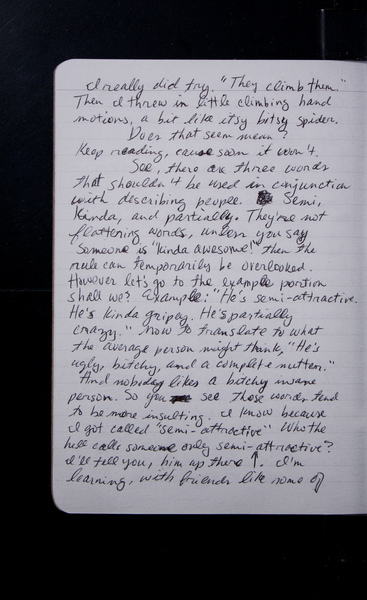 I really did try. "They climb them."
Then I threw in little climbing hand
motions, a bit like itsy bitsy spider.
Does that seem mean?
Keep reading, cause soon it won't.
See, there are three words
that shouldn't be used in conjunction
with describing people. Semi,
Kinda, and partially. They're not
flattering words, unless you say
someone is "kinda awesome!" then the
rule can temporarily be overlooked.
However let's go to the example portion
shall we? Example: "He's semi-attractive.
He's kinda gripey. He's partially
crazy." Now to translate to what
the average person might think, "He's
ugly, bitchy, and a complete nutter."
And nobody likes a bitchy insane
person. So you see those words tend
to be more insulting. I know because
I got called "semi-attractive" Who the
hell calls someone only semi-attractive?
I'll tell you, him up there ↑. I'm
learning, with friends like some of